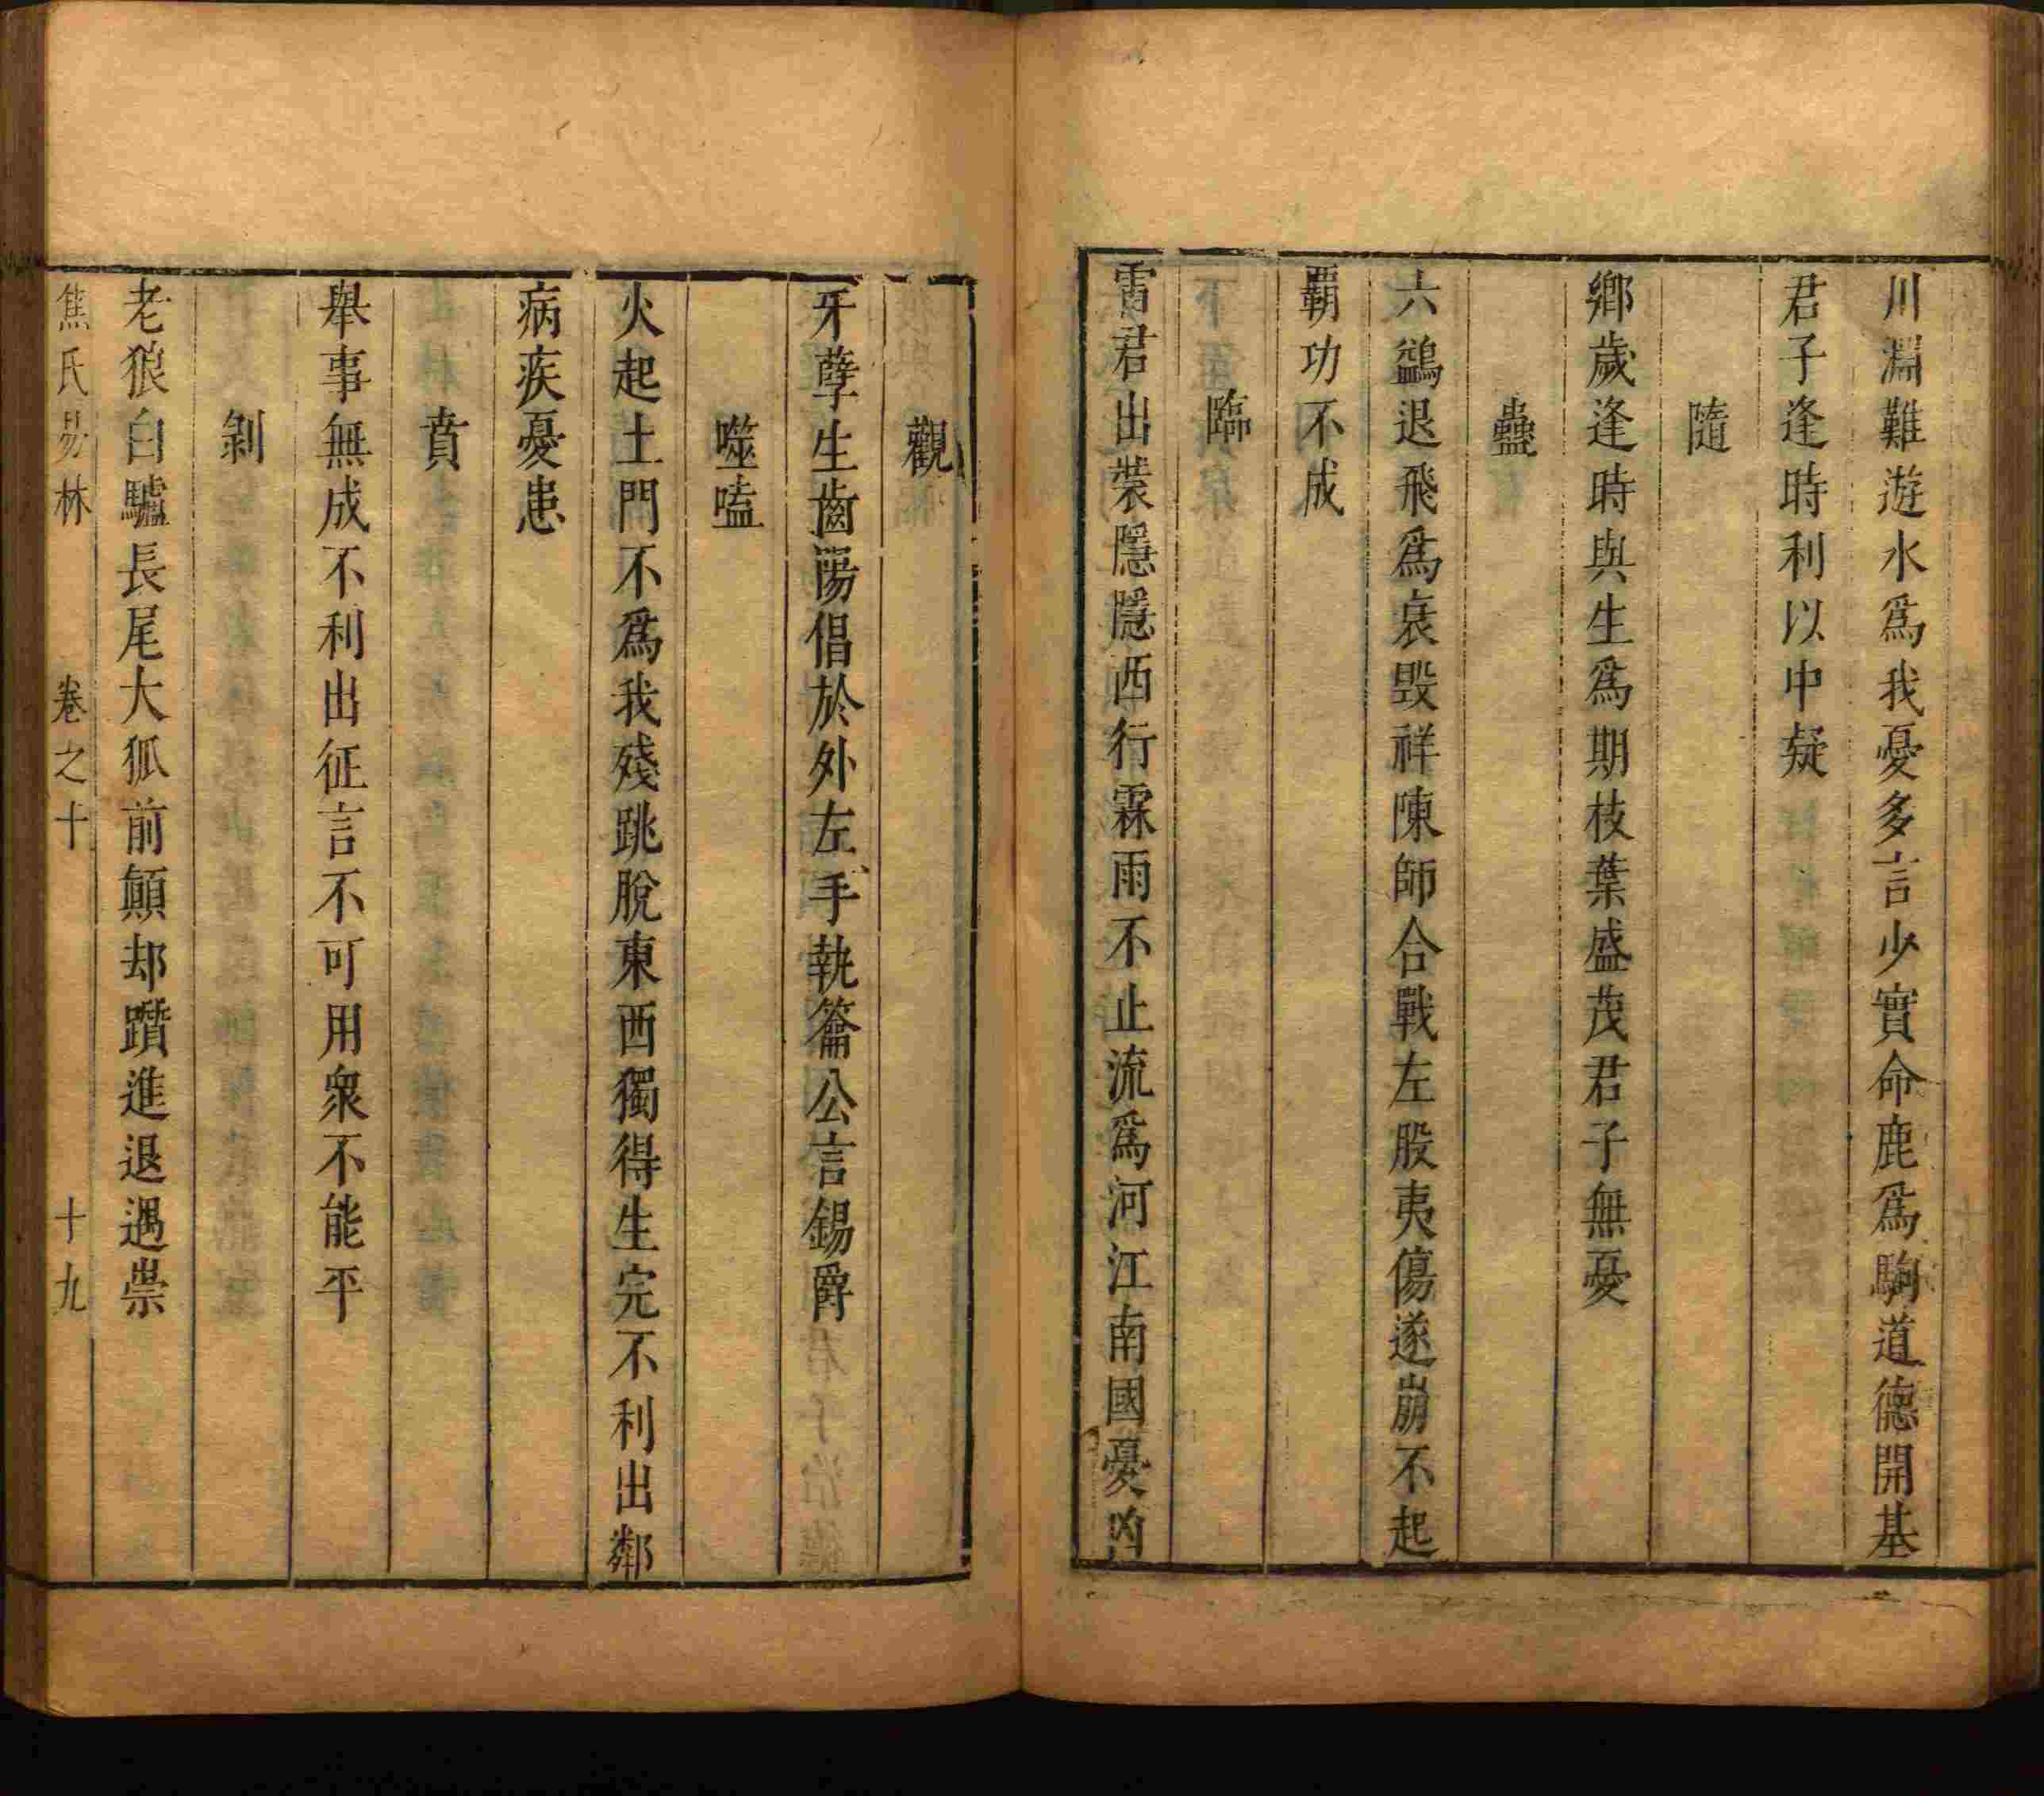 川淵難遊水爲我憂多言少實命鹿爲駒道德開基
君子逢時利以中疑
隨
鄉歲逢時與生爲期枝葉盛茂君子無憂
蠱
六鷁退飛爲衰毀祥陳師合戰左股夷傷遂崩不起
覇功不成
臨
雷君出裝隱隱西行霖雨不止流爲河江南國憂凶
觀
牙孽生齒蕩倡於外左手執籥公言錫爵
噬嗑
火起土門不爲我殘跳脫東西獨得生完不利出鄰
病疾憂患
賁
舉事無成不利出征言不可用衆不能平
剝
老狼白驢長尾大狐前顚却躓進退遇祟
焦氏易林 卷之十 十九